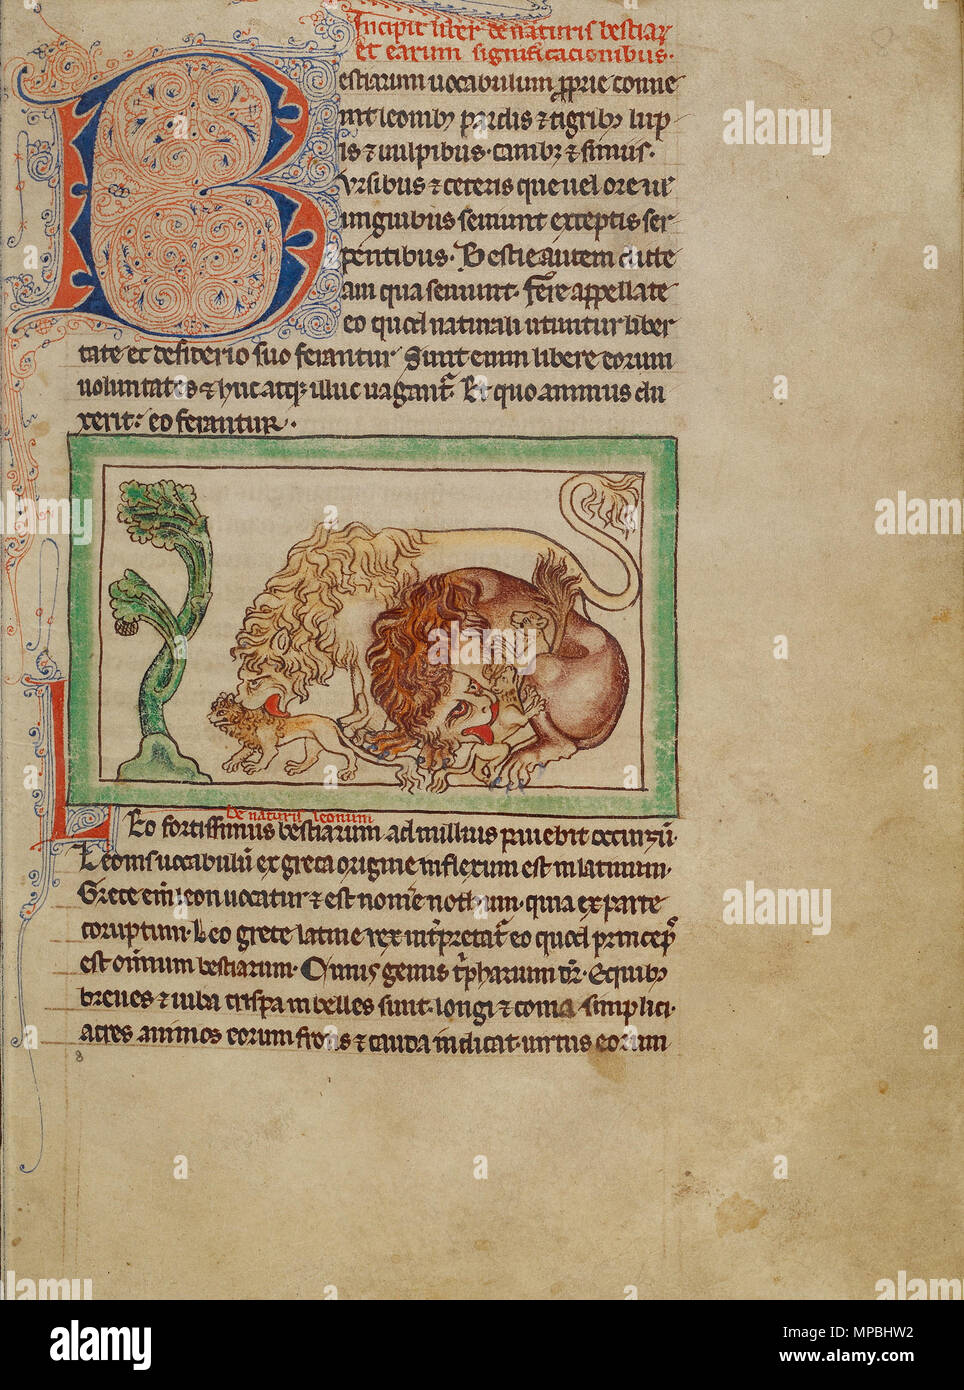 Incipit liber de naturis bestiaꝝ
et earum significacionibus·
Bestiarum uocabulum ꝓprie conue
nit leonibꝫ pardis ⁊ tigribꝫ lup
is ⁊ uulpibus· canibꝫ ⁊ simiis·
Vrsibus ⁊ ceteris que uel ore ue
unguibus seuiunt exceptis ser
pentibus· Bestie autem dicte
am qua seuiunt· Fere appellate
eo quod naturali utuntur liber
tate et desiderio suo ferantur Sunt enim libere eorum
uoluntates ⁊ huc atqꝫ illuc uagant᷑· Et quo animus du
xerit: eo ferantur·
De naturis leonum
Leo fortissimus bestiarum ad nullius pauebit occursū·
Leonis uocabulū ex greca origine inflexum est in latinum·
Grece em̄ leon uocatur ⁊ est nom̄e nothum· quia ex parte
coruptum· Leo grece latine rex int̄pretat᷑ eo quod princeps
est om̄ium bestiarum·
breues ⁊ iuba crispa inbelles sunt· longi ⁊ coma simplici·
acres animos eorum frons ⁊ cauda indicat· uirtus eorum
8
alamy
alamy
Image ID: MPBHW2
www.alamy.com